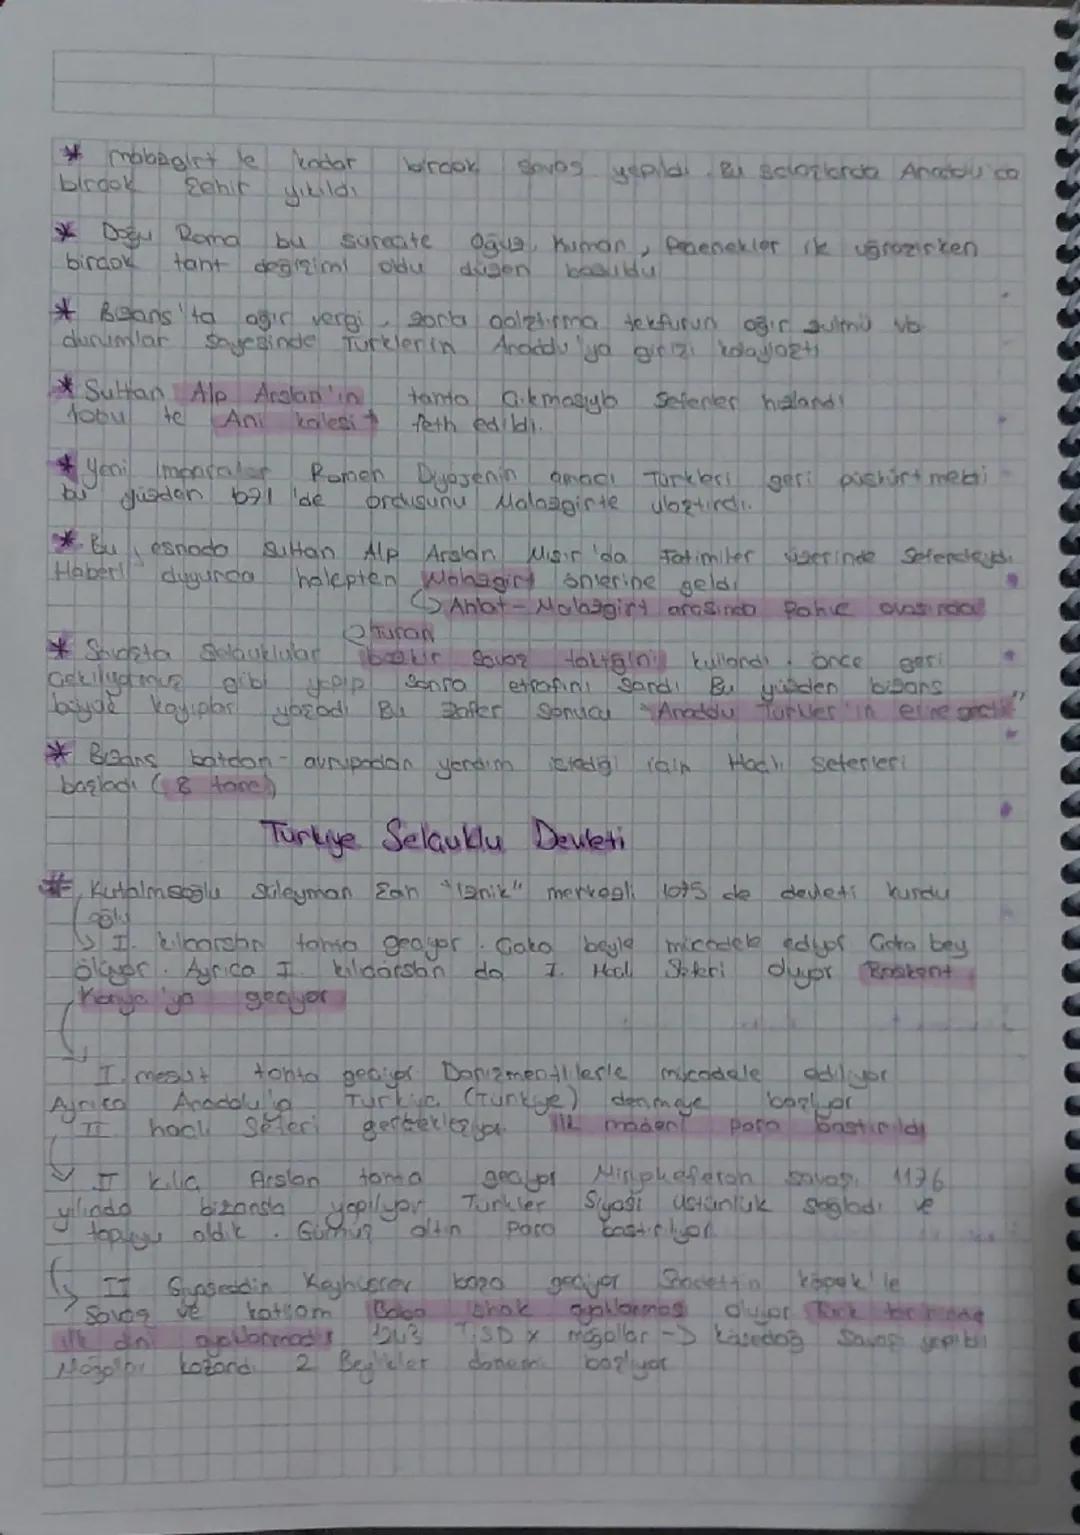 * mabzgirt e kadar birçok savaş yapıldı. Bu savaşlarda Anadolu'da
birçok şehir yıkıldı
* Doğu Roma bu süreçte Oğuz, Kuman, Peçenekler ik uğraşırken
birçok taht değişimi oldu düzen bozuldu
* Bizans'ta ağır vergi, zorla çalıştırma tekfurun ağır zulmü vb
durumlar sayesinde Türklerin Anadolu'ya girişi kolaylaştı
* Sultan Alp Arslan'ın tahta çıkmasıyla seferler hızlandı
1064 te Ani kalesi feth edildi.
* Yeni imparator Romen Diyojenin amacı Türkleri geri püskürtmekti
bu yüzden 1071'de ordusunu Malazgirte ulaştırdı.
* Bu esnada Sultan Alp Arslan Mısır'da Fatimiler üzerinde Seferdeydi.
Haberi duyunca halepten Malazgirt önlerine geldi
Ahlat - Malazgirt arasında Rahve ovasında
Turan
* Savaşta Selçuklular bozkır savaş taktiğini kullandı. önce geri
çekiliyormuş gibi yapıp sonra etrafını sardı Bu yüzden bizans
büyük kayıplar yaşadı Bu zafer sonucu "Anadolu Türkler'in eline geçti"
* Bizans batdan - avrupadan yardım istediği için Haçlı Seferleri
başladı (8 tane)
Türkiye Selçuklu Devleti
# Kutalmışoğlu Süleyman Şah "İznik" merkezli 1075 de devleti kurdu
oğlu
I. kılıçarslan tahta geçiyor. Çaka beyle mücadele ediyor Çaka bey
ölüyor. Ayrıca I. kılıçarslan da I. Haçlı Seferi oluyor Başkent
Konya'ya geçiyor
I. mesut tahta geçiyor Danişmentlilerle mücadele ediliyor
Ayrıca Anadolu'a Turkia (Türkiye) denmeye başlıyor
II haçlı Seferi gerçekleşiyor. İlk maden para bastırıldı
II kılıç Arslan tahta geçiyor Miryokefalon savaşı 1176
yılında bizansla yapılıyor Türkler Siyasi üstünlük sağladı ve
tapuyu aldık. Gümüş altın para bastırılıyor.
II Gıyaseddin Keyhüsrev başa geçiyor Sadettin köpek'le
savaş ve katliam Baba İshak ayaklanması oluyor Türk tarihinde
ilk dini ayaklanmadır 1243 TSD x moğollar -> kösedağ savaşı yapıldı
Moğollar kazandı 2 Beylikler dönemi başlıyor